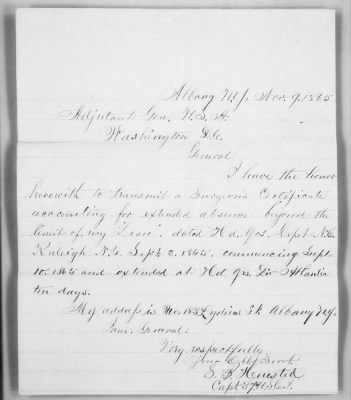 Albany N.Y. Nov. 9. 1865
Adjutant Gen. U.S.A
Washington D.C.
General
I have the honor
herewith to transmit a Surgeons Certificate
accounting for extended absence beyond the
limit of my "Leave" dated Hd. Qrs. Dept N.C.
Raleigh N.C. Sept 2. 1865, commencing Sept
10. 1865 and extended at Hd Qrs Div Atlantic
ten days.
My address is No. Lydius St. Albany N.Y.
I am. General:
Very respectfully
Your Obdt Servt.
Capt